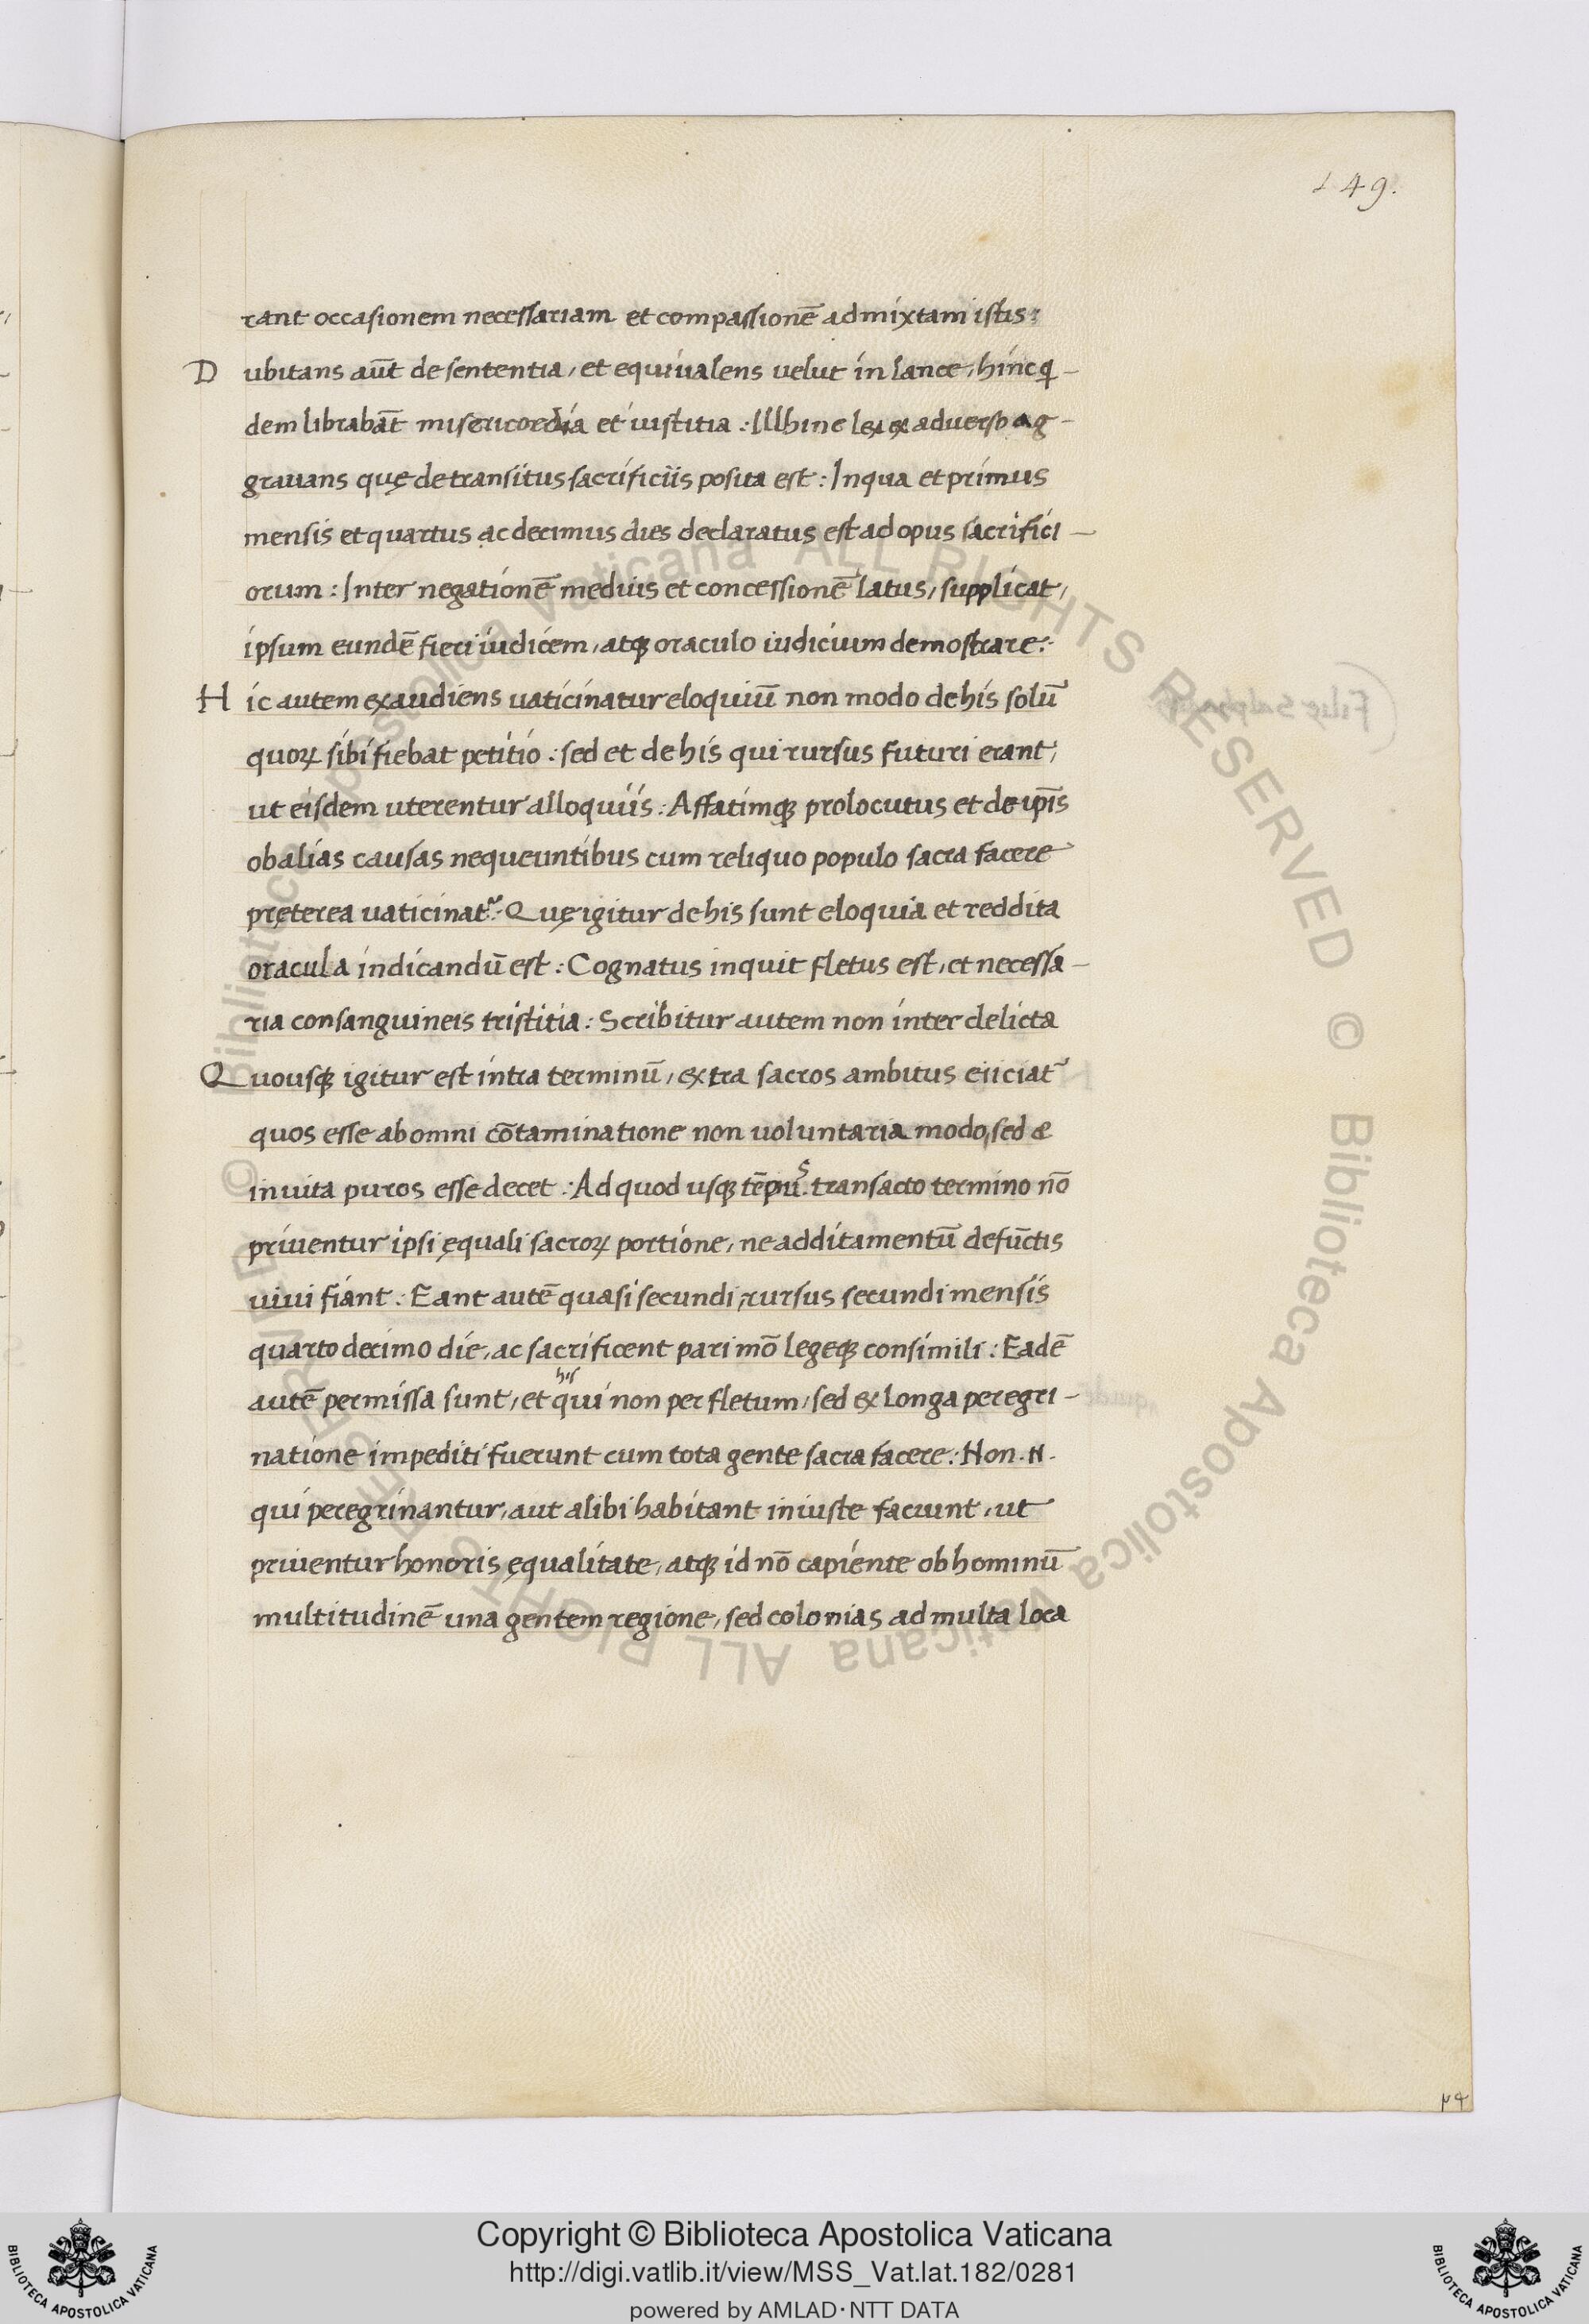 149.
rant occasionem necessariam et compassionē admixtam istis:
Dubitans aūt de sententia, et equiualens uelut in lance, hinc q̄-
dem librabāt misericordia et iustitia: Illhinc lex ex aduerso ag-
grauans quę de transitus sacrificiis posita est: In qua et primus
mensis et quartus ac decimus dies declaratus est ad opus sacrifici-
orum: Inter negationē medius et concessionē latus, supplicat,
ipsum eundē fieri iudicem, atqꝫ oraculo iudicium demostrare:
Hic autem exaudiens uaticinatur eloquiū non modo de his solū
quoꝝ sibi fiebat petitio: sed et de his qui rursus futuri erant,
ut eisdem uterentur alloquiis: Affatimqꝫ prolocutus et de ip̄is
ob alias causas nequeuntibus cum reliquo populo sacra facere
pręterea uaticinatᷣ: Quę igitur de his sunt eloquia et reddita
oracula indicandū est: Cognatus inquit fletus est, et necessa-
ria consanguineis tristitia: Scribitur autem non inter delicta
Quousqꝫ igitur est intra terminū, extra sacros ambitus eiiciat᷑
quos esse ab omni cōtaminatione non uoluntaria modo, sed æ
inuita puros esse decet: Ad quod usqꝫ transacto termino nō
priuentur ipsi ęquali sacroꝝ portione, ne additamentū defūctis
uiui fiant: Eant autē quasi secundi, rursus secundi mensis
quarto decimo die, ac sacrificent pari mō legeqꝫ consimili: Eadē
autē permissa sunt, et his qui non per fletum, sed ex longa peregri-
natione impediti fuerunt cum tota gente sacra facere: Non .N.
qui peregrinantur, aut alibi habitant iniuste faciunt, ut
priuentur honoris ęqualitate, atqꝫ id nō capiente ob hominū
multitudinē una gentem regione, sed colonias ad multa loca
© Biblioteca Apostolica Vaticana ALL RIGHTS RESERVED © Biblioteca Apostolica Vaticana ALL RIGHTS RESERVED
Copyright © Biblioteca Apostolica Vaticana
http://digi.vatlib.it/view/MSS_Vat.lat.182/0281
powered by AMLAD·NTT DATA
BIBLIOTECA APOSTOLICA VATICANA
BIBLIOTECA APOSTOLICA VATICANA